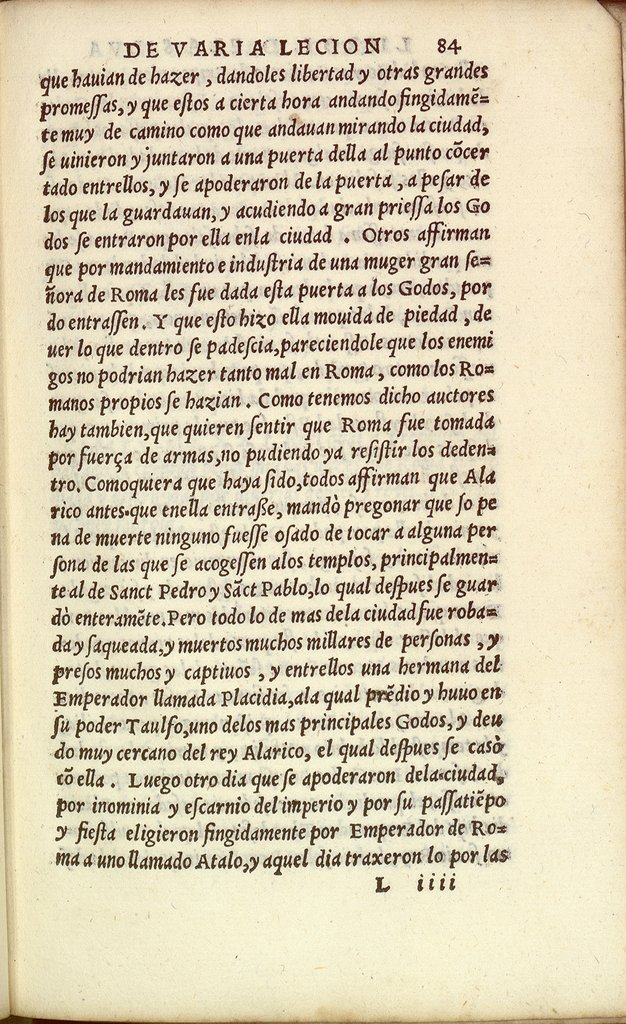 DE VARIA LECION 84
que hauian de hazer, dandoles libertad y otras grandes
promeſſas, y que eſtos a cierta hora andando fingidamẽ=
te muy de camino como que andauan mirando la ciudad,
ſe uinieron y juntaron a una puerta della al punto cõcer
tado entrellos, y ſe apoderaron de la puerta, a peſar de
los que la guardauan, y acudiendo a gran prieſſa los Go
dos ſe entraron por ella enla ciudad. Otros affirman
que por mandamiento e induſtria de una muger gran ſe=
ñora de Roma les fue dada eſta puerta a los Godos, por
do entraſſen. Y que eſto hizo ella mouida de piedad, de
uer lo que dentro ſe padeſcia, pareciendole que los enemi
gos no podrian hazer tanto mal en Roma, como los Ro=
manos propios ſe hazian. Como tenemos dicho auctores
hay tambien, que quieren ſentir que Roma fue tomada
por fuerça de armas, no pudiendo ya reſiſtir los deden=
tro. Comoquiera que haya ſido, todos affirman que Ala
rico antes que enella entraße, mandò pregonar que ſo pe
na de muerte ninguno fueſſe oſado de tocar a alguna per
ſona de las que ſe acogeſſen alos templos, principalmen=
te al de Sanct Pedro y Sãct Pablo, lo qual deſpues ſe guar
dò enteramẽte. Pero todo lo de mas dela ciudad fue roba=
da y ſaqueada, y muertos muchos millares de perſonas, y
preſos muchos y captiuos, y entrellos una hermana del
Emperador llamada Placidia, ala qual prẽdio y huuo en
ſu poder Taulfo, uno delos mas principales Godos, y deu
do muy cercano del rey Alarico, el qual deſpues ſe casò
cõ ella. Luego otro dia que ſe apoderaron dela ciudad,
por inominia y eſcarnio del imperio y por ſu paſſatiẽpo
y fieſta eligieron fingidamente por Emperador de Ro=
ma a uno llamado Atalo, y aquel dia traxeron lo por las
L iiii